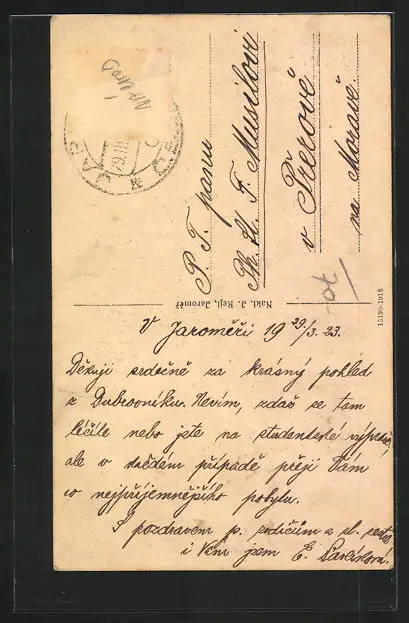 P. T. panu
Ph. St. F. Musilovi
v Přerově
na Moravě
Nakl. J. Rejl, Jaroměř
15190-1918
29.III
V Jaroměři 19 29/3. 23.
Děkuji srdečně za krásný pohled
z Dubrovníku. Nevím, zdaž se tam
léčíte nebo jste na studentské výpravě,
ale v každém případě přeji Vám
co nejpříjemnějšího pobytu.
S pozdravem p. rodičům a sl. sestře
i Vám jsem E.